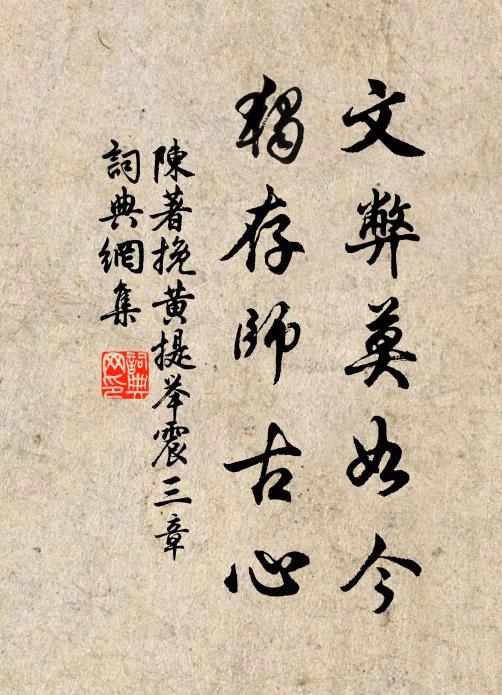 文弊莫如今
獨存師古心
陳著挽黄提举震三章
詞典網集
詞典网印